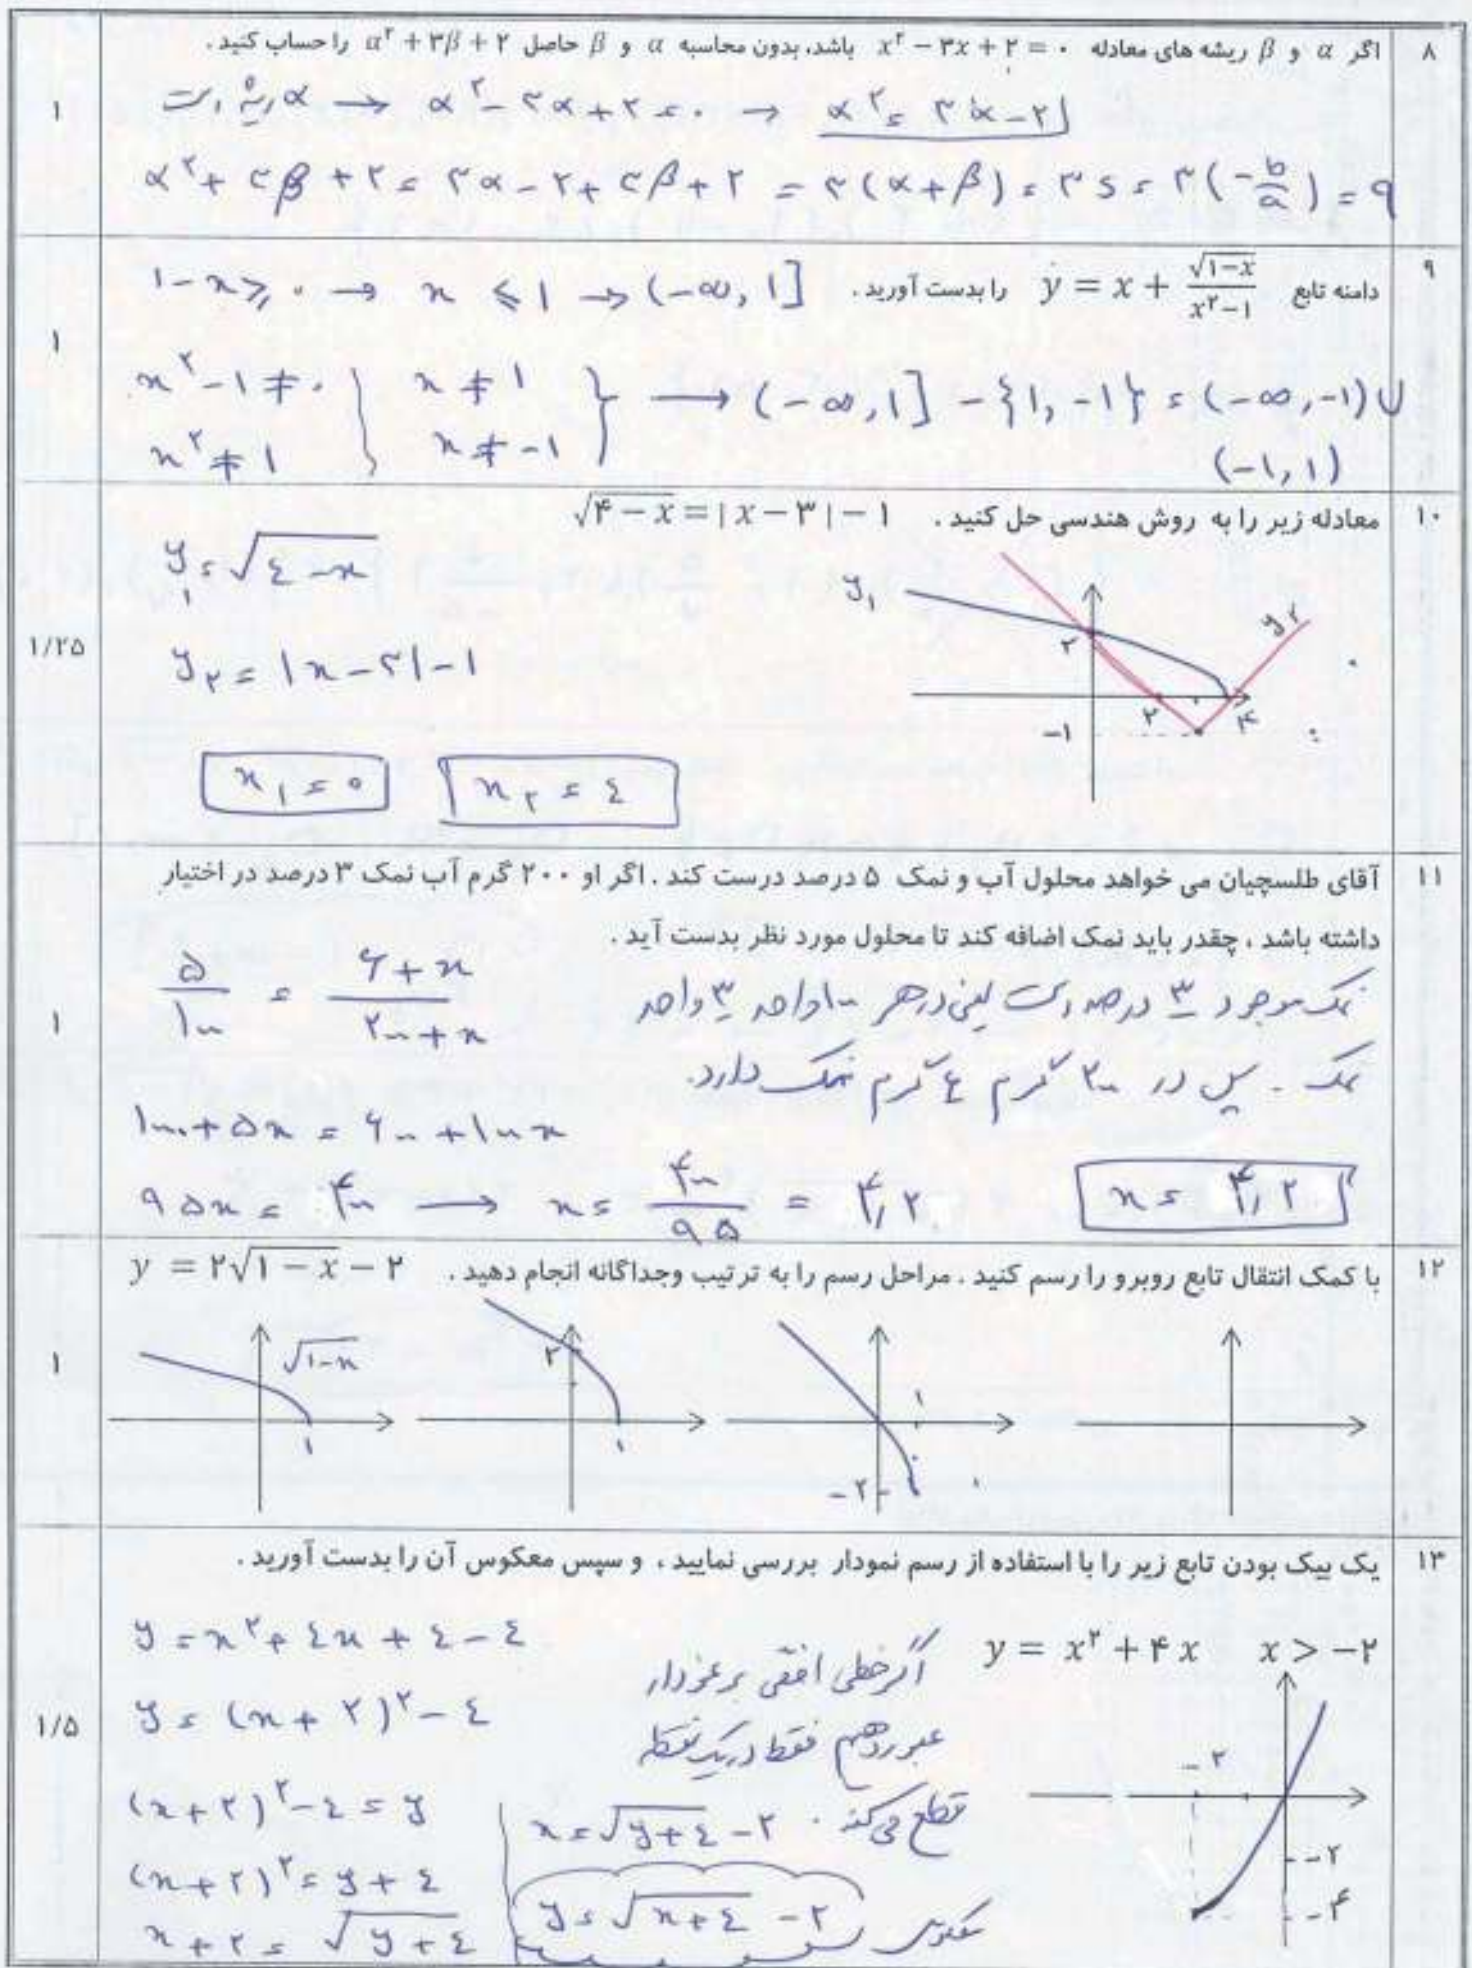 ۸ اگر α و β ریشه های معادله x^۲ − ۳x + ۲ = ۰ باشد، بدون محاسبه α و β حاصل α^۲ + ۳β + ۲ را حساب کنید .
۱
α ریشه است → α^۲ − ۳α + ۲ = ۰ → α^۲ = ۳α − ۲
α^۲ + ۳β + ۲ = ۳α − ۲ + ۳β + ۲ = ۳(α + β) = ۳S = ۳(−b/a) = ۹
۹ دامنه تابع y = x + √(۱−x)/(x^۲−۱) را بدست آورید .
۱
۱ − x ⩾ ۰ → x ⩽ ۱ → (−∞, ۱]
x^۲ − ۱ ≠ ۰ } x ≠ ۱ } → (−∞, ۱] − {۱, −۱} = (−∞, −۱) ∪
x^۲ ≠ ۱ } x ≠ −۱ } (−۱, ۱)
۱۰ معادله زیر را به روش هندسی حل کنید . √(۴ − x) = |x − ۳| − ۱
۱/۲۵
y₁ = √(٤ − x)
y₂ = |x − ۳| − ۱
y₁ y₂
۲
۲ ۳ ۴
−۱
x₁ = ۰ x₂ = ٤
۱۱ آقای طلسچیان می خواهد محلول آب و نمک ۵ درصد درست کند . اگر او ۲۰۰ گرم آب نمک ۳ درصد در اختیار
داشته باشد ، چقدر باید نمک اضافه کند تا محلول مورد نظر بدست آید .
۱
نمک موجود ۳ درصد است یعنی در هر ۱۰۰ واحد ۳ واحد
نمک . پس در ۲۰۰ گرم ۶ گرم نمک دارد.
۵/۱۰۰ = (۶ + x)/(۲۰۰ + x)
۱۰۰۰ + ۵x = ۶۰۰ + ۱۰۰x
۹۵x = ۴۰۰ → x = ۴۰۰/۹۵ = ۴٫۲ x = ۴٫۲
۱۲ با کمک انتقال تابع روبرو را رسم کنید . مراحل رسم را به ترتیب وجداگانه انجام دهید . y = ۲√(۱ − x) − ۲
۱
√(۱−x)
۱
۲
۱
۱
−۲
۱۳ یک بیک بودن تابع زیر را با استفاده از رسم نمودار بررسی نمایید ، و سپس معکوس آن را بدست آورید .
۱/۵
y = x^۲ + ۴x x > −۲
y = x^۲ + ٤x + ٤ − ٤
y = (x + ۲)^۲ − ٤
(x + ۲)^۲ − ٤ = y
(x + ۲)^۲ = y + ٤
x + ۲ = √(y + ٤)
اگر خطی افقی بر نمودار
عبور دهیم فقط در یک نقطه
قطع می کند .
x = √(y + ٤) − ۲
معکوس y = √(x + ٤) − ۲
−۲
−۲
−۴